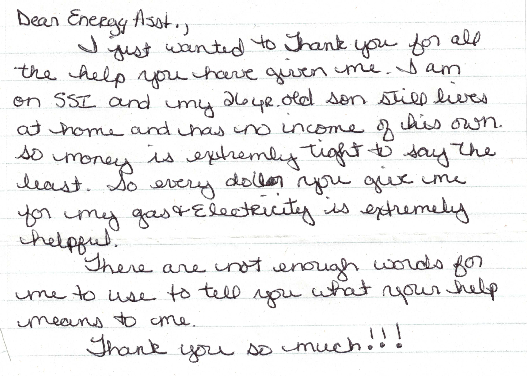 Dear Energy Asst.,
I just wanted to Thank you for all
the help you have given me. I am
on SSI and my 26 yr. old son still lives
at home and has no income of his own.
So money is extremly tight to say the
least. So every dollar you give me
for my gas & Electricity is extremely
helpful.
There are not enough words for
me to use to tell you what your help
means to me.
Thank you so much!!!